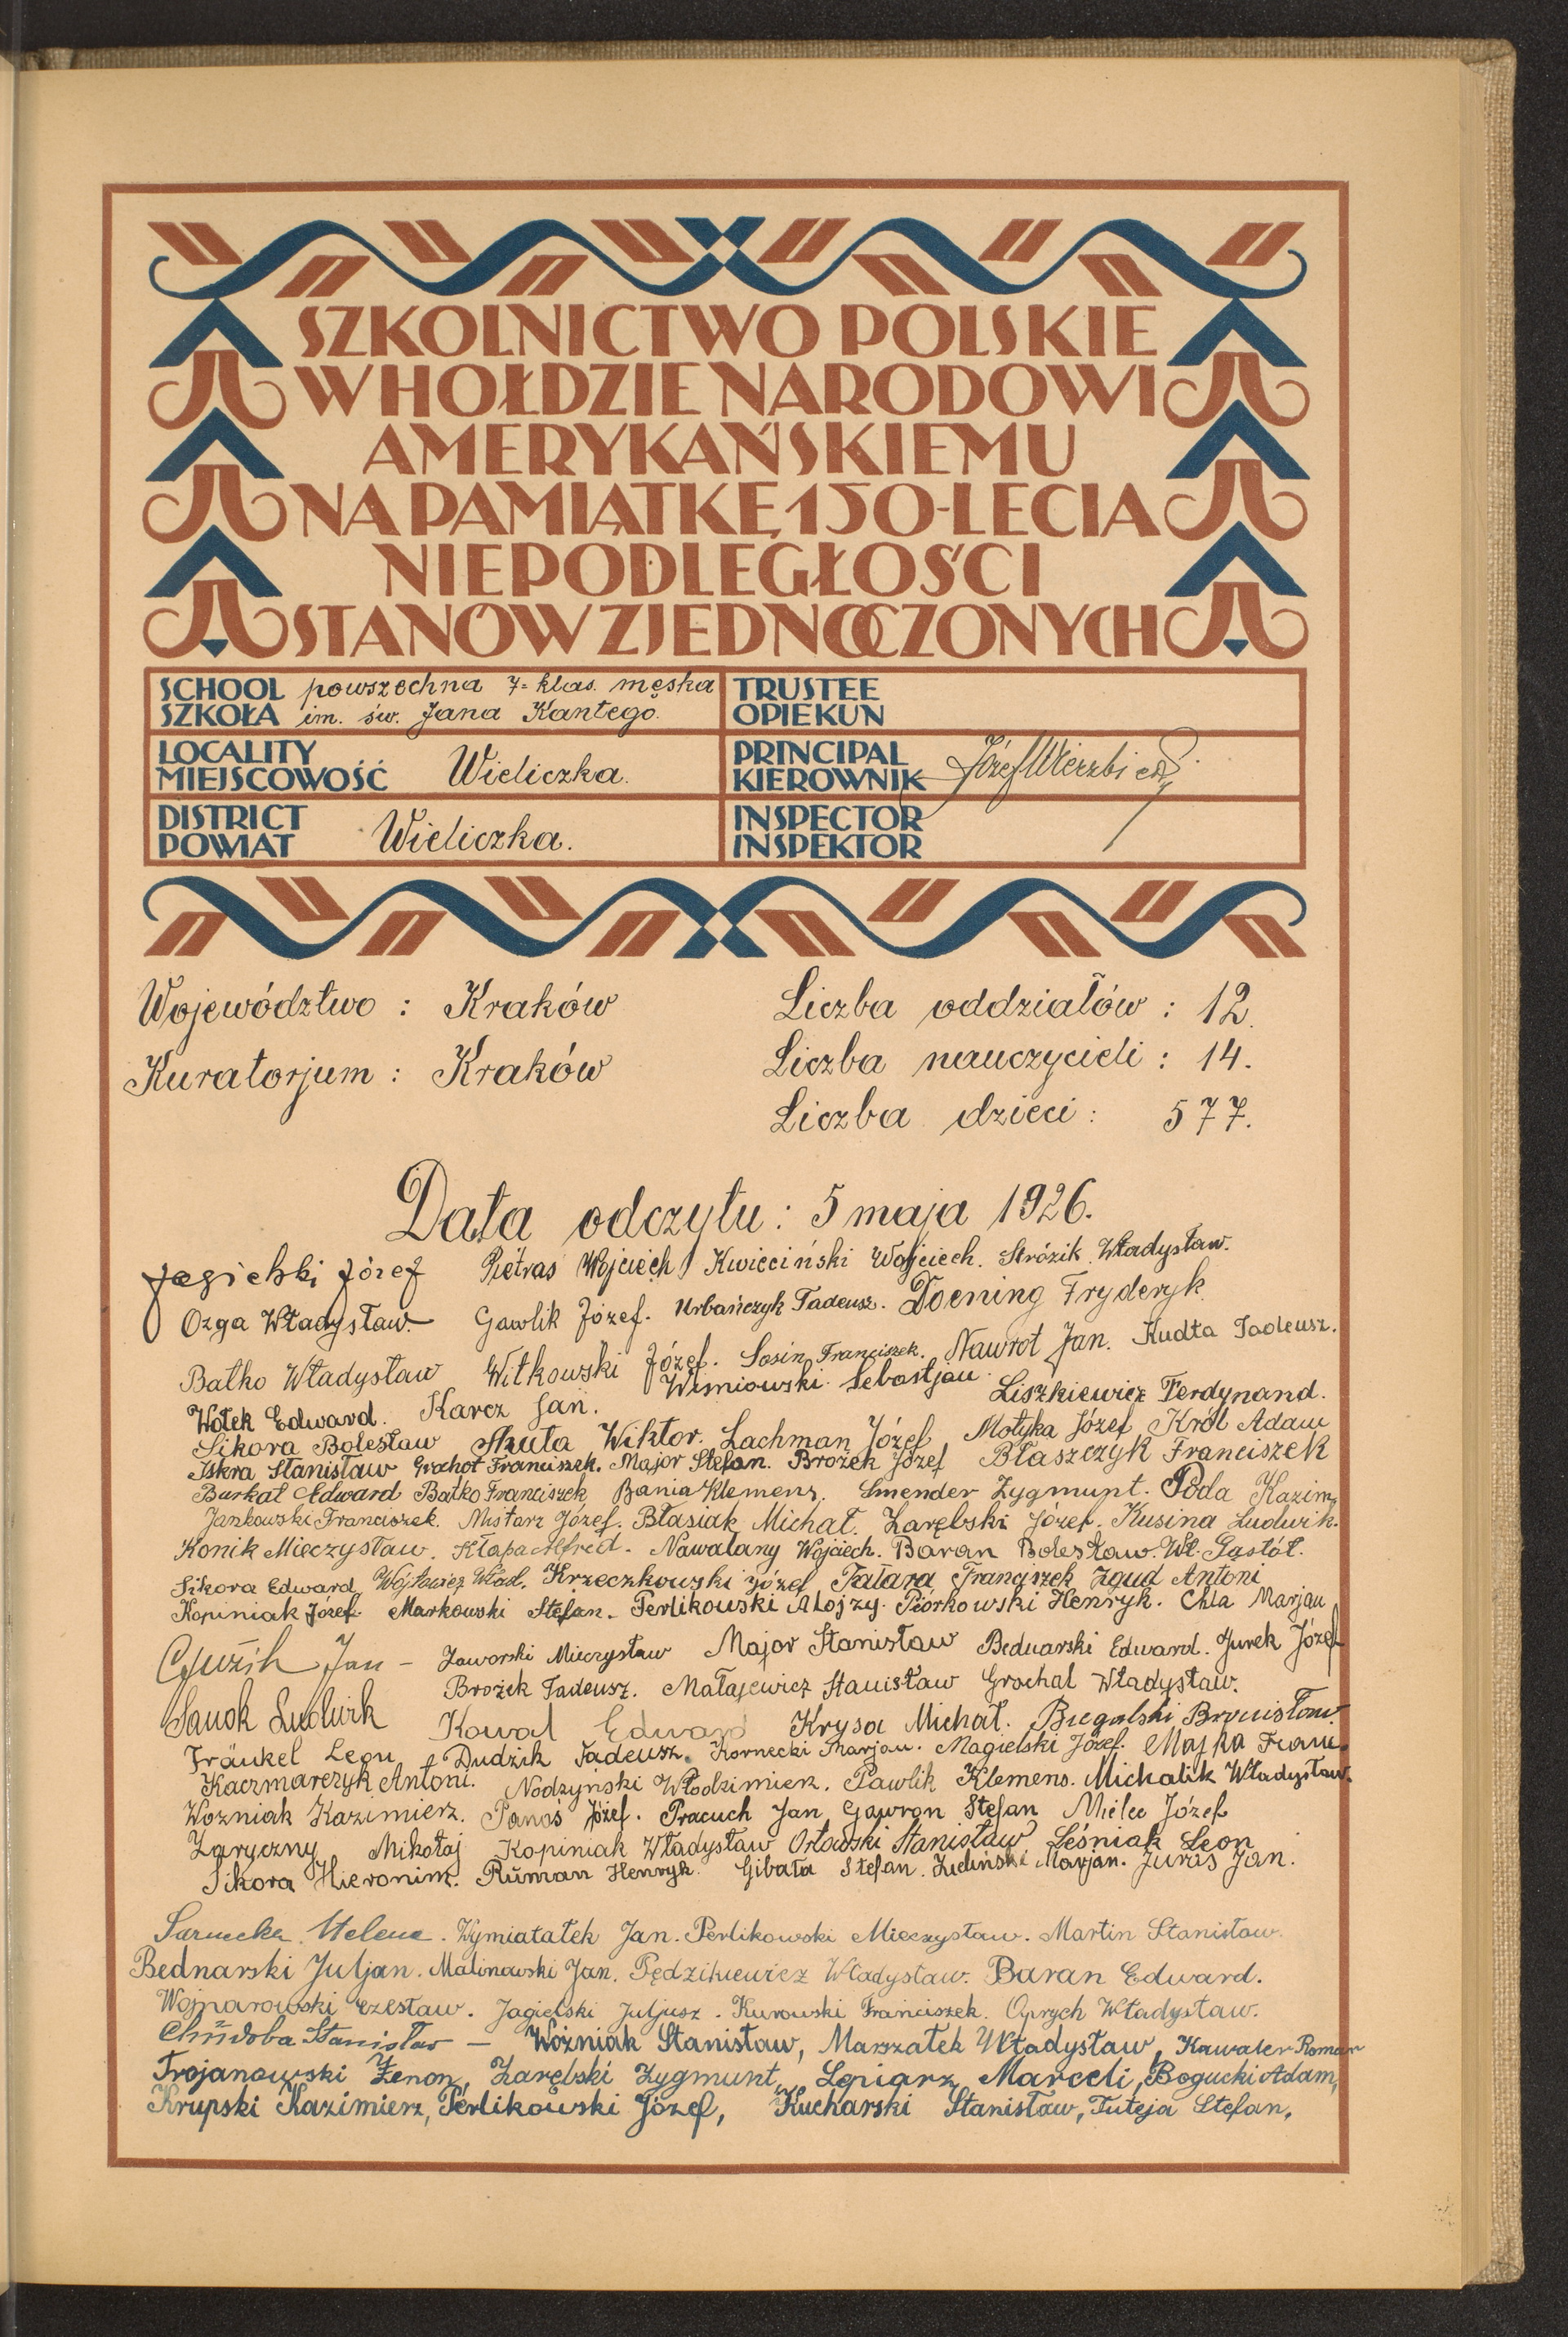 SZKOLNICTWO POLSKIE
W HOŁDZIE NARODOWI
AMERYKAŃSKIEMU
NA PAMIĄTKĘ 150-LECIA
NIEPODLEGŁOŚCI
STANÓW ZJEDNOCZONYCH
SCHOOL powszechna 7-klas. męska
SZKOŁA im. św. Jana Kantego.
TRUSTEE
OPIEKUN
LOCALITY
MIEJSCOWOŚĆ Wieliczka.
PRINCIPAL
KIEROWNIK Józef
DISTRICT
POWIAT Wieliczka.
INSPECTOR
INSPEKTOR
Województwo : Kraków
Kuratorjum : Kraków
Liczba oddziałów : 12.
Liczba nauczycieli : 14.
Liczba dzieci : 577.
Data odczytu : 5 maja 1926.
Józef Pietras Wojciech Kwieciński Wojciech. Stróżik Władysław.
Ozga Władysław. Gawlik Józef. Urbańczyk Tadeusz. Doening Fryderyk
Batko Władysław Witkowski Józef. Sosin Franciszek. Nawrot Jan. Kudła Tadeusz.
Wołek Edward. Karcz Jan. Wiśniowski Sebastjan. Liszkiewicz Ferdynand.
Sikora Bolesław Skuta Wiktor. Lachman Józef Motyka Józef Król Adam
Iskra Stanisław Grochot Franciszek. Major Stefan. Brożek Józef Błaszczyk Franciszek
Burkat Edward Batko Franciszek Bania Klemens. Smender Zygmunt. Poda Kazim.
Jankowski Franciszek. Mistarz Józef. Błasiak Michał. Zarębski Józef. Kusina Ludwik.
Konik Mieczysław. Kłapa Alfred. Nawalany Wojciech. Baran Bolesław. Wł. Gąstół.
Sikora Edward Wójtowicz Wład. Krzeczkowski Józef Tatara Franciszek Zgud Antoni
Kopiniak Józef. Markowski Stefan. Perlikowski Alojzy. Piórkowski Henryk. Chla Marjan
Jan - Jaworski Mieczysław Major Stanisław Bednarski Edward. Jurek Józef
Brożek Tadeusz. Małajewicz Stanisław Grochal Władysław.
Sanok Ludwik Kowal Edward Krysa Michał. Biegalski Bronisław.
Fränkel Leon Dudzik Tadeusz. Kornecki Marjan. Magielski Józef. Majka Franc.
Kaczmarczyk Antoni. Nodzyński Włodzimierz. Pawlik Klemens. Michalik Władysław.
Woźniak Kazimierz. Panaś Józef. Pracuch Jan Gawron Stefan Mielec Józef
Zaryczny Mikołaj Kopiniak Władysław Orłowski Stanisław Leśniak Leon
Sikora Hieronim. Ruman Henryk. Gibała Stefan. Zieliński Marjan. Juras Jan.
Sarnecka Helena. Wymiatałek Jan. Perlikowski Mieczysław. Martin Stanisław.
Bednarski Juljan. Malinowski Jan. Pędzikiewicz Władysław. Baran Edward.
Wojnarowski Czesław. Jagielski Juljusz. Kurowski Franciszek. Oprych Władysław.
Chudoba Stanisław - Woźniak Stanisław, Marszałek Władysław, Kawaler Roman
Trojanowski Zenon, Zarębski Zygmunt, Łopiarz Marceli, Bogucki Adam,
Krupski Kazimierz, Perlikowski Józef, Kucharski Stanisław, Tuteja Stefan.